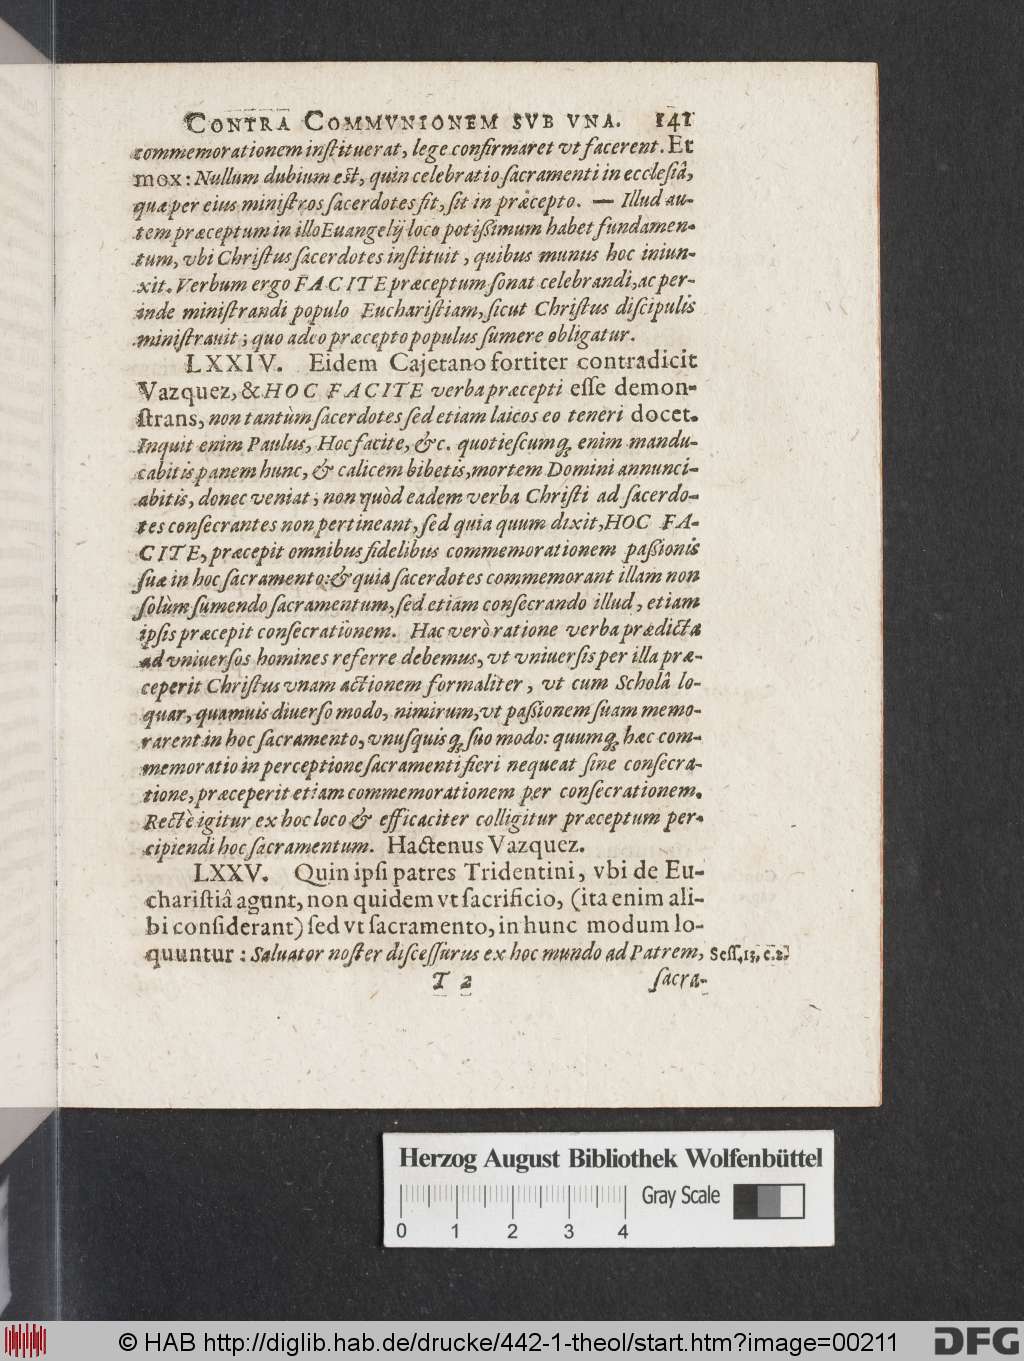 CONTRA COMMVNIONEM SVB VNA. 141
commemorationem instituerat, lege confirmaret vt facerent. Et
mox: Nullum dubium est, quin celebratio sacramenti in ecclesiâ,
quæ per eius ministros sacerdotes fit, sit in præcepto. — Illud au-
tem præceptum in illo Euangelij loco potißimum habet fundamen-
tum, vbi Christus sacerdotes instituit, quibus munus hoc iniun-
xit. Verbum ergo FACITE præceptum sonat celebrandi, ac per-
inde ministrandi populo Eucharistiam, sicut Christus discipulis
ministrauit; quo adeo præcepto populus sumere obligatur.
LXXIV. Eidem Cajetano fortiter contradicit
Vazquez, & HOC FACITE verba præcepti esse demon-
strans, non tantùm sacerdotes sed etiam laicos eo teneri docet.
Inquit enim Paulus, Hoc facite, &c. quotiescumq; enim mandu-
cabitis panem hunc, & calicem bibetis, mortem Domini annunci-
abitis, donec veniat; non quòd eadem verba Christi ad sacerdo-
tes consecrantes non pertineant, sed quia quum dixit, HOC FA-
CITE, præcepit omnibus fidelibus commemorationem paßionis
suæ in hoc sacramento: & quia sacerdotes commemorant illam non
solùm sumendo sacramentum, sed etiam consecrando illud, etiam
ipsis præcepit consecrationem. Hac verò ratione verba prædicta
ad vniuersos homines referre debemus, vt vniuersis per illa præ-
ceperit Christus vnam actionem formaliter, vt cum Scholâ lo-
quar, quamuis diuerso modo, nimirum, vt paßionem suam memo-
rarent in hoc sacramento, vnusquisq; suo modo: quumq; hæc com-
memoratio in perceptione sacramenti fieri nequeat sine consecra-
tione, præceperit etiam commemorationem per consecrationem.
Rectè igitur ex hoc loco & efficaciter colligitur præceptum per-
cipiendi hoc sacramentum. Hactenus Vazquez.
LXXV. Quin ipsi patres Tridentini, vbi de Eu-
charistiâ agunt, non quidem vt sacrificio, (ita enim ali-
bi considerant) sed vt sacramento, in hunc modum lo-
quuntur: Saluator noster discessurus ex hoc mundo ad Patrem, Sess. 13. c. 2.
T 2 sacra-
Herzog August Bibliothek Wolfenbüttel
Gray Scale
0 1 2 3 4
© HAB http://diglib.hab.de/drucke/442-1-theol/start.htm?image=00211
DFG